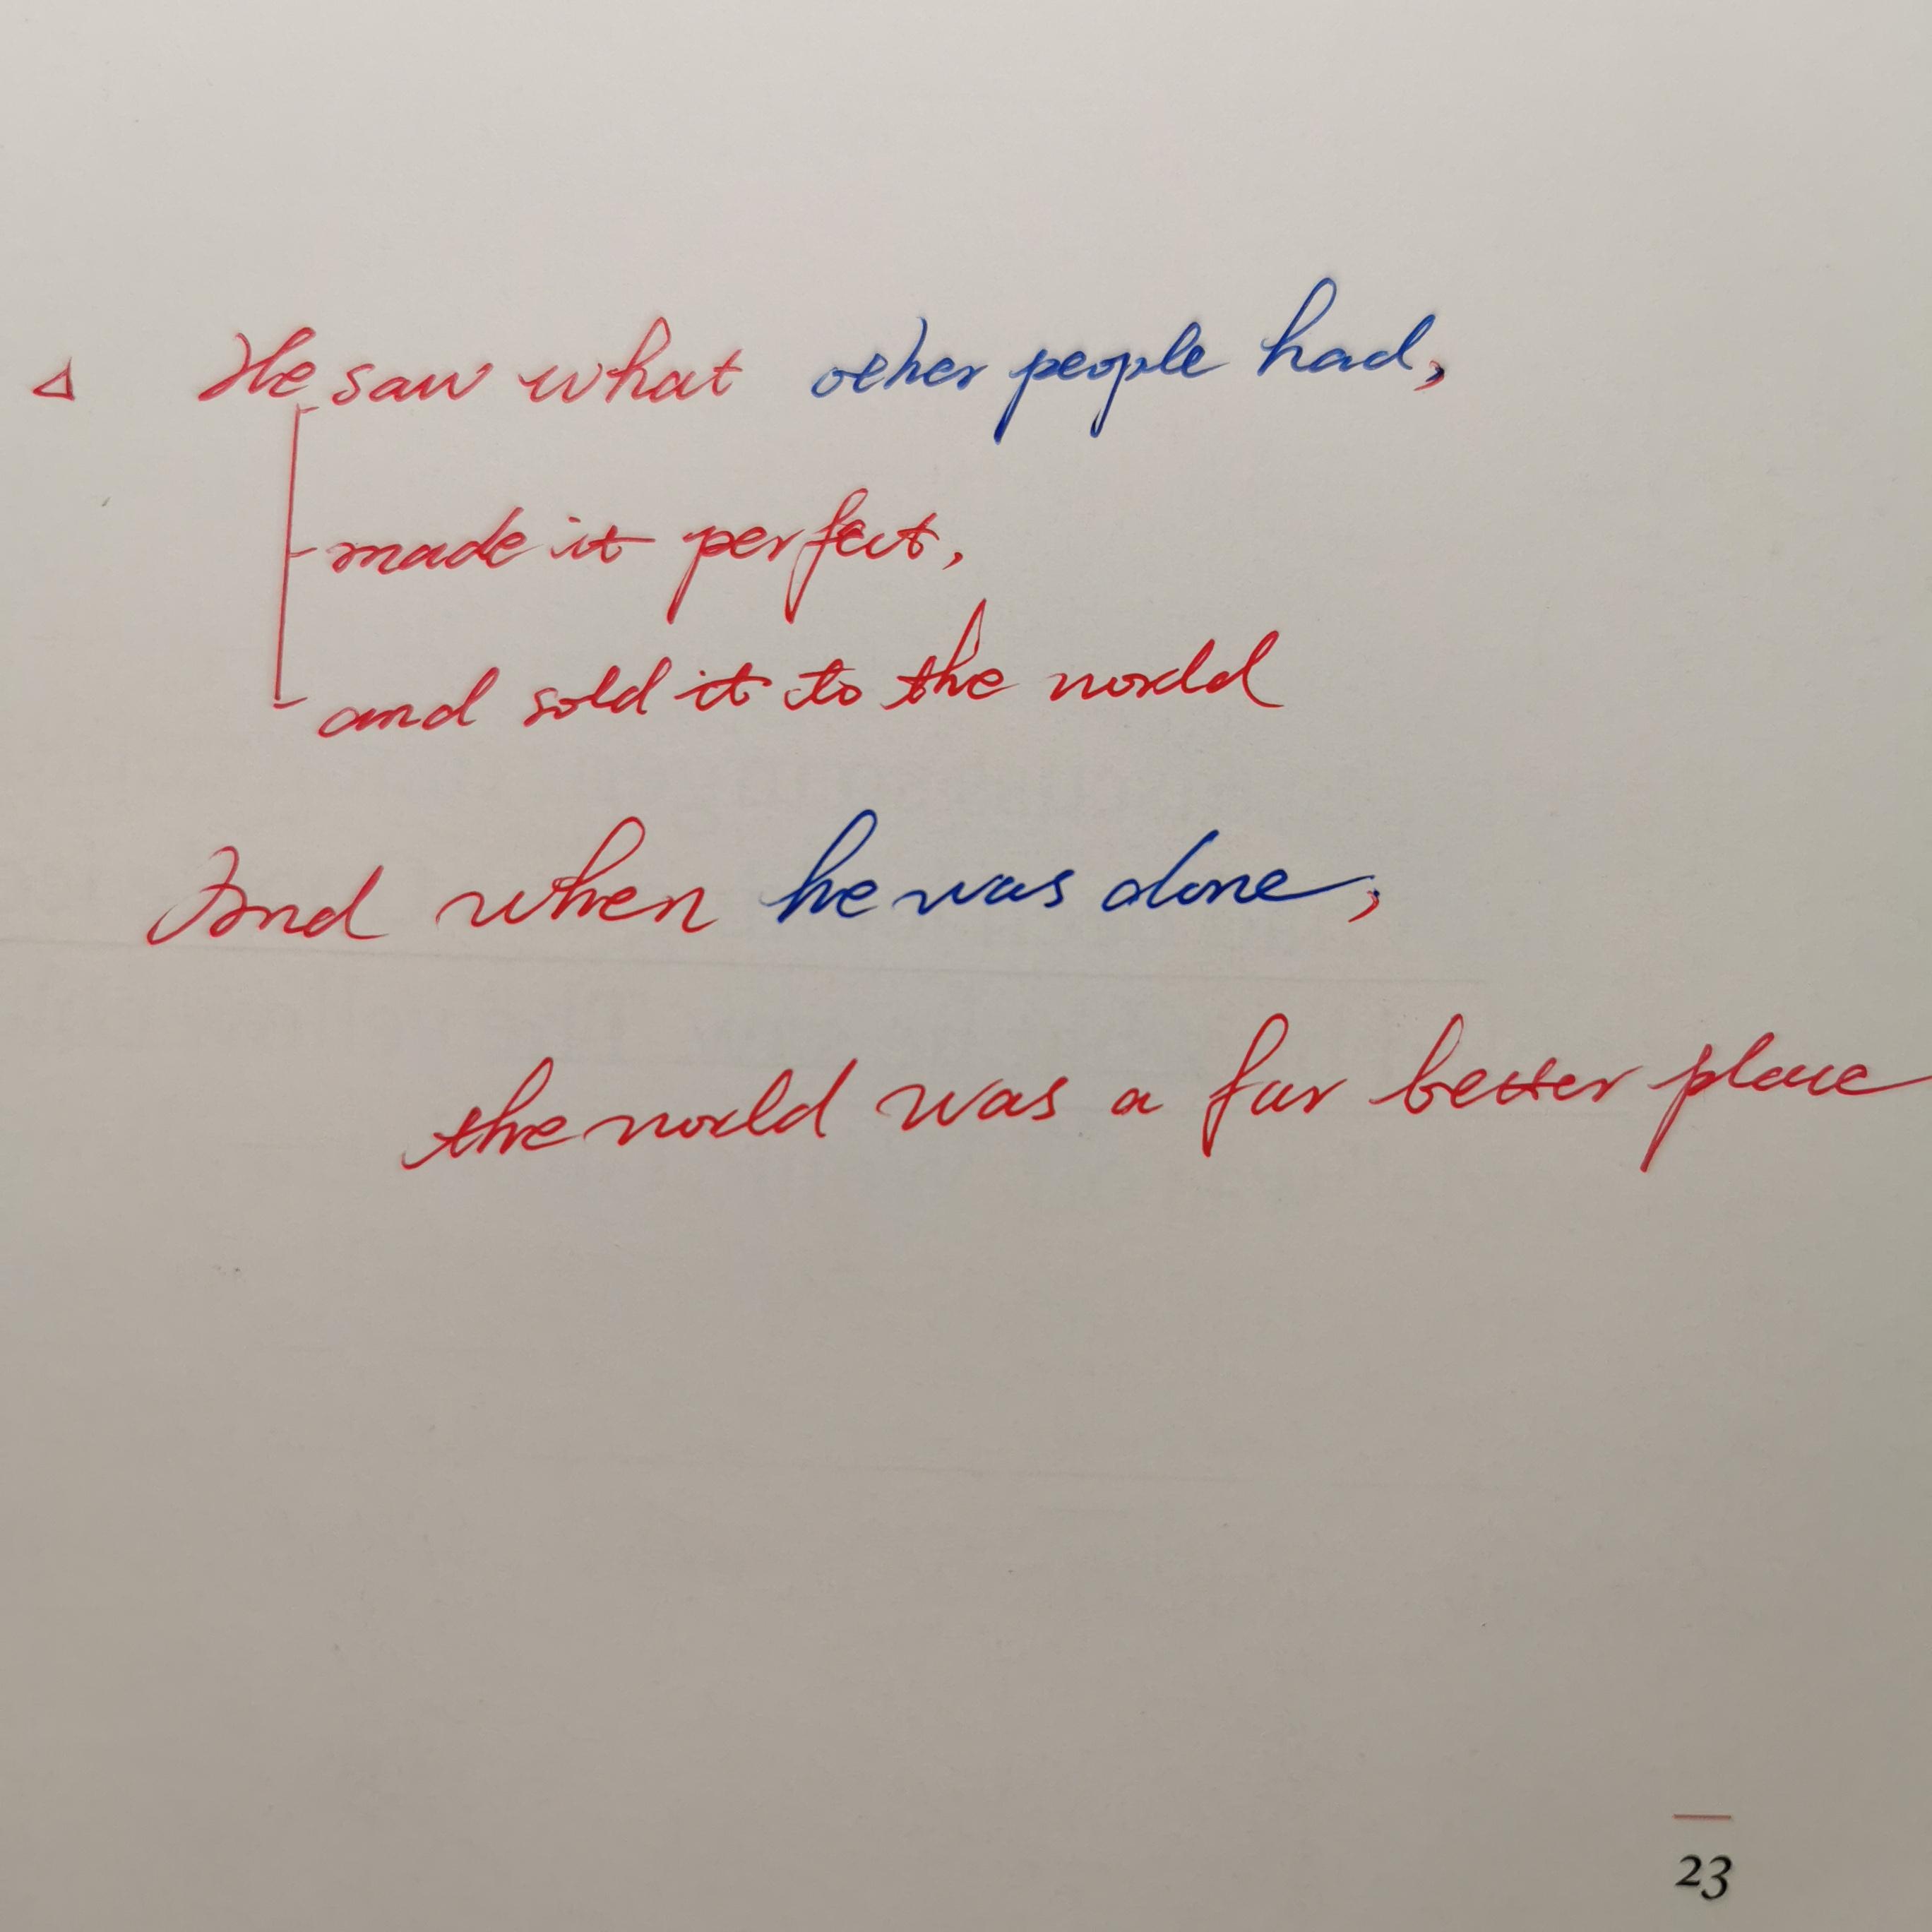 △ He saw what other people had,
made it perfect,
and sold it to the world
And when he was done,
the world was a far better place
23